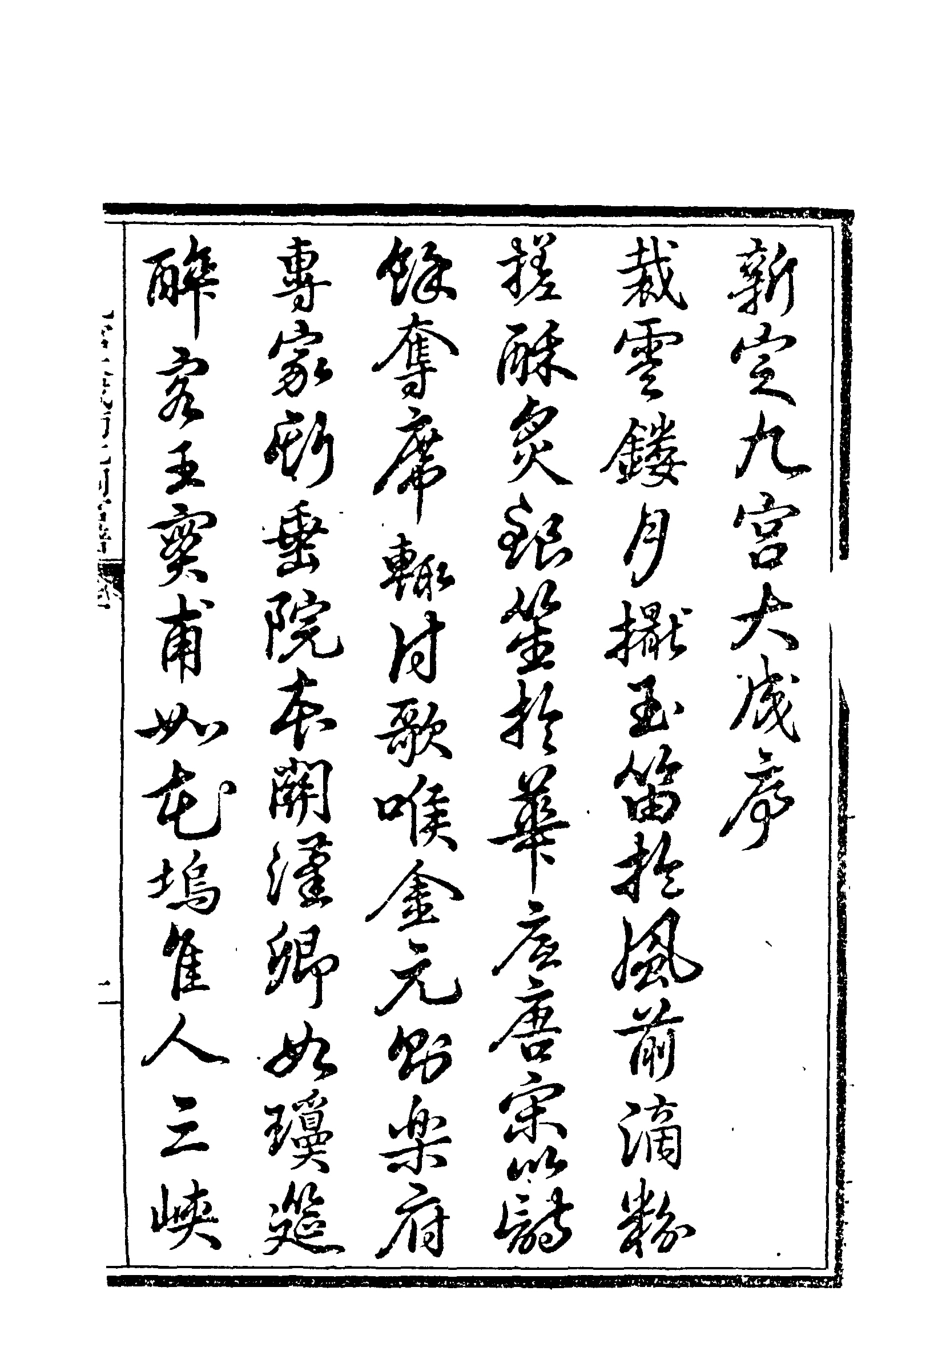 新定九宮大成序
裁雲鏤月擫玉笛於風前滴粉
搓酥炙銀笙於華底唐宋以詩
餘奪席輒付歌喉金元則樂府
專家垂院本關漢卿如瓊筵
醉客王實甫如花塢佳人三峽